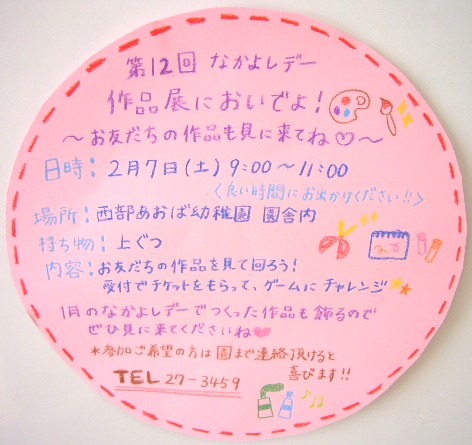 第12回 なかよしデー
作品展においでよ!
～お友だちの作品も見に来てね♡～
日時：2月7日(土) 9:00～11:00
〈良い時間にお出かけください!!〉
場所：西部あおば幼稚園 園舎内
持ち物：上ぐつ
内容：お友だちの作品を見て回ろう!
受付でチケットをもらって、ゲームにチャレンジ
1月のなかよしデーでつくった作品も飾るので
ぜひ見に来てくださいね♥
*参加ご希望の方は園まで連絡頂けると
喜びます!!
TEL 27-3459